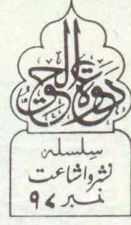 دعوة الحق
سلسلہ
نشرواشاعت
نمبر ۹۷